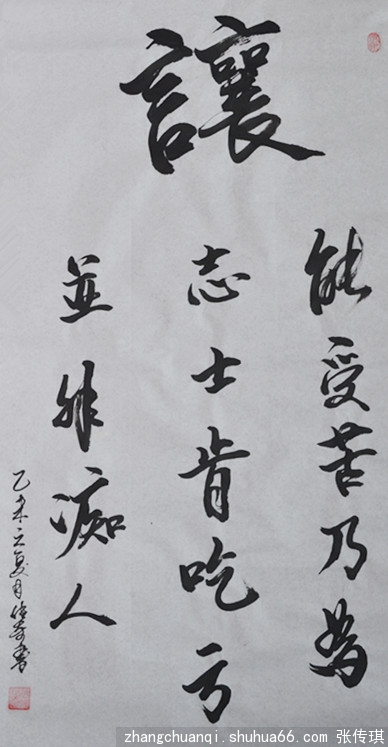 讓
能受苦乃為
志士肯吃亏
並非痴人
乙未立夏月傳琪書
zhangchuanqi.shuhua66.com 张传琪